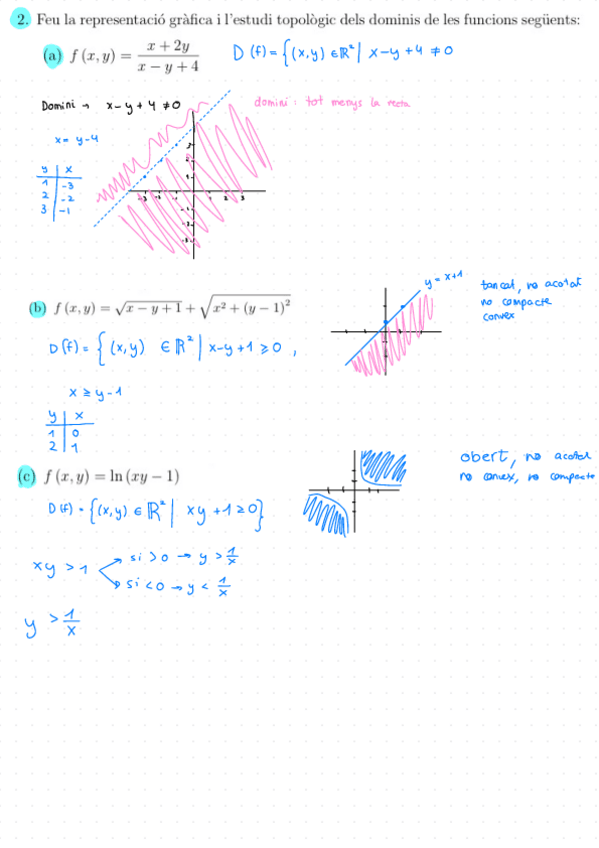 2. Feu la representació gràfica i l'estudi topològic dels dominis de les funcions següents:
(a) f (x, y) = (x + 2y)/(x − y + 4) D (f) = {(x,y) ∈ ℝ² | x-y +4 ≠0
Domini → x-y + 4 ≠0 domini : tot menys la recta
x= y-4
y | x
1 | -3
2 | -2
3 | -1
y = x+1
(b) f (x, y) = √(x − y + 1) + √(x² + (y − 1)²) tancat, no acotat
no compacte
convex
D(f) = { (x,y) ∈ ℝ² | x-y+1 ≥0 ,
x ≥ y-1
y | x
1 | 0
2 | 1
(c) f (x, y) = ln (xy − 1) obert, no acotat
no convex, no compacte
D(f) = {(x,y) ∈ ℝ² | xy +1≥0}
xy > 1
si >0 → y > 1/x
si <0 → y < 1/x
y > 1/x